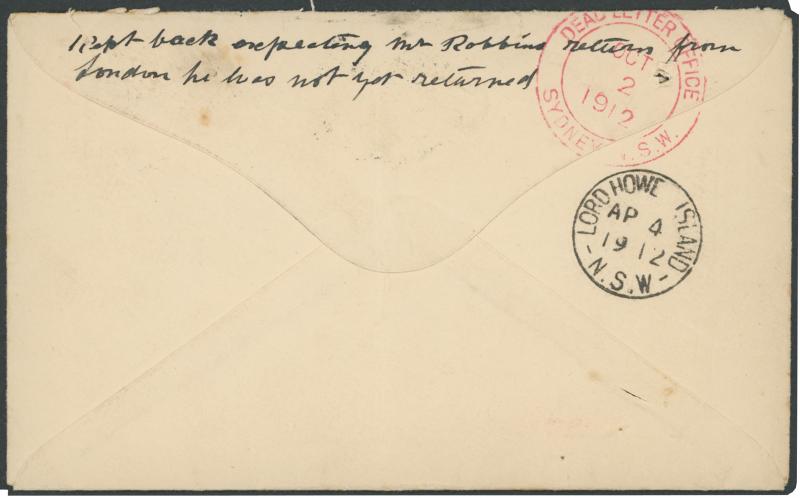 Kept back expecting Mr Robbins return from
London he has not yet returned
DEAD LETTER OFFICE
OCT
2
1912
SYDNEY N.S.W.
LORD HOWE ISLAND
AP 4
1912
- N.S.W -